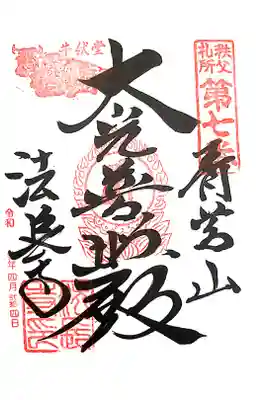 秩父
札所
第七番
青苔山
大光普照殿
牛伏堂
法長寺
令和
年四月
四日